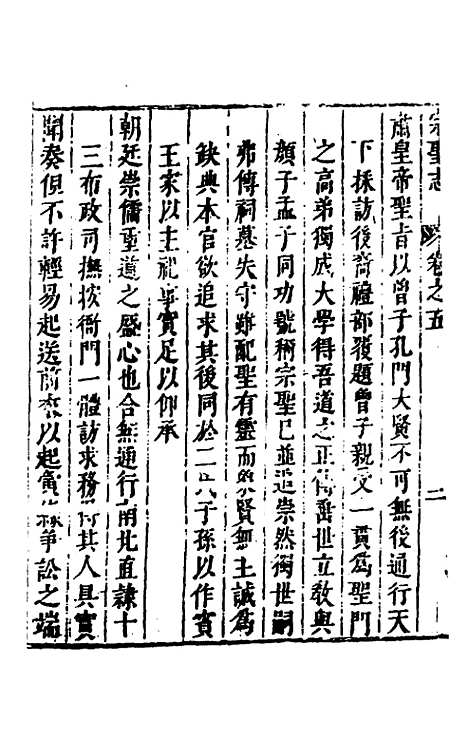 宗聖志　卷之五　二
肅皇帝聖旨以曾子孔門大賢不可無後通行天
下採訪後裔禮部覆題曾子親受一貫爲聖門
之高弟獨成大學得吾道之正傳垂世立教與
顏子孟子同功號稱宗聖已並追崇然獨世嗣
弗傳祠墓失守雖配聖有靈而象賢無主誠爲
缺典本官欲追求其後同於二氏子孫以作賓
王家以主祀事實足以仰承
朝廷崇儒重道之盛心也合無通行南北直隸十
三布政司撫按衙門一體訪求務得其人具實
聞奏但不許輕易起送前來以起寅緣爭訟之端